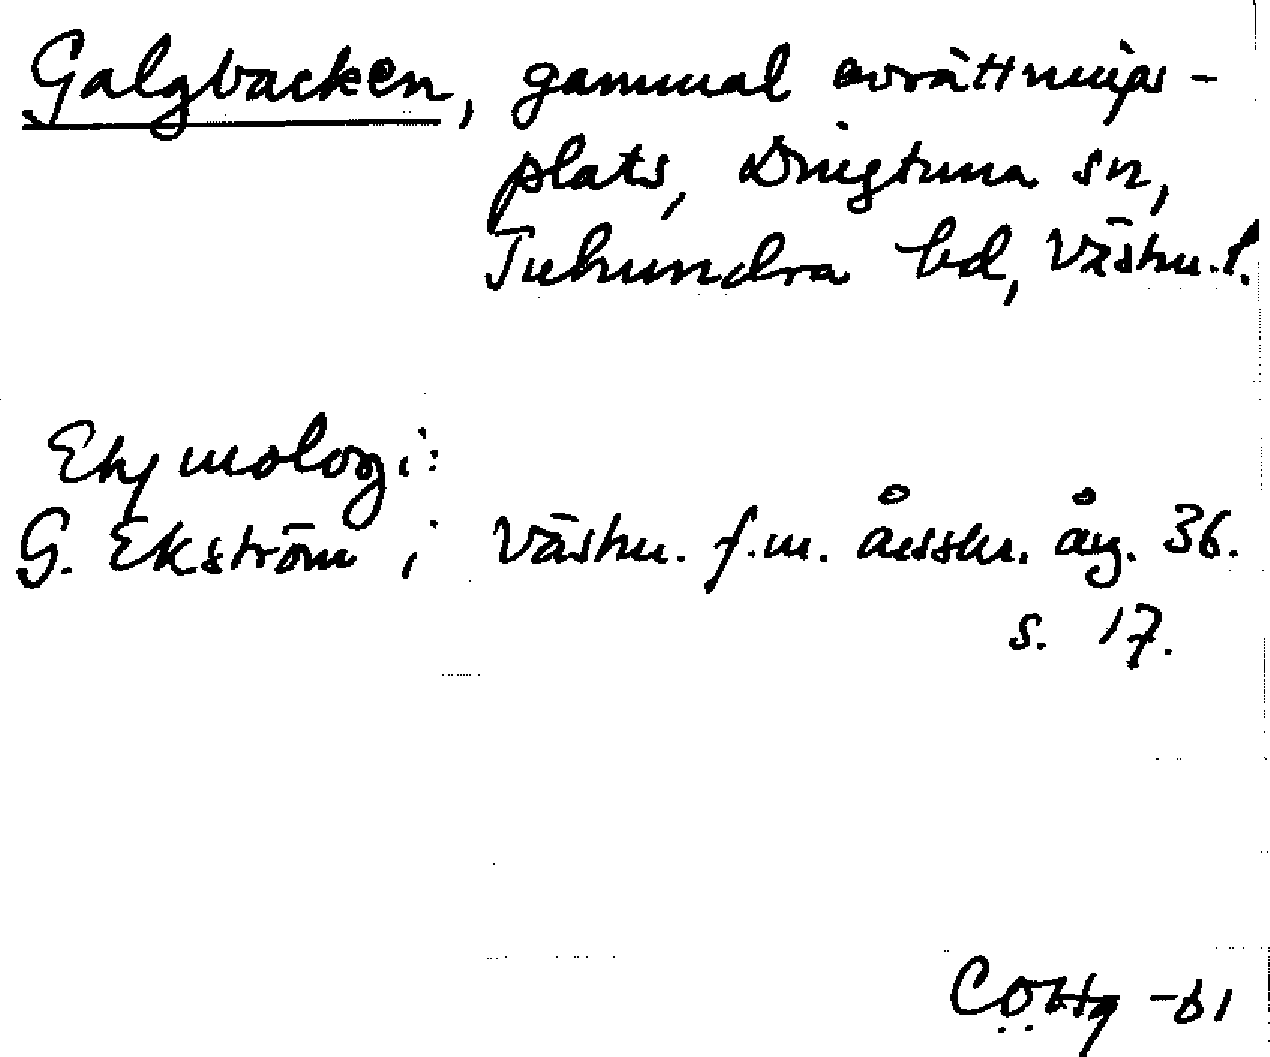 Galgbacken, gammal avrättnings-
plats, Dingtuna sn,
Tuhundra hd, Västm. l.
Etymologi:
G. Ekström i Västm. f.m. årsskr. årg. 36.
s. 17.
-61